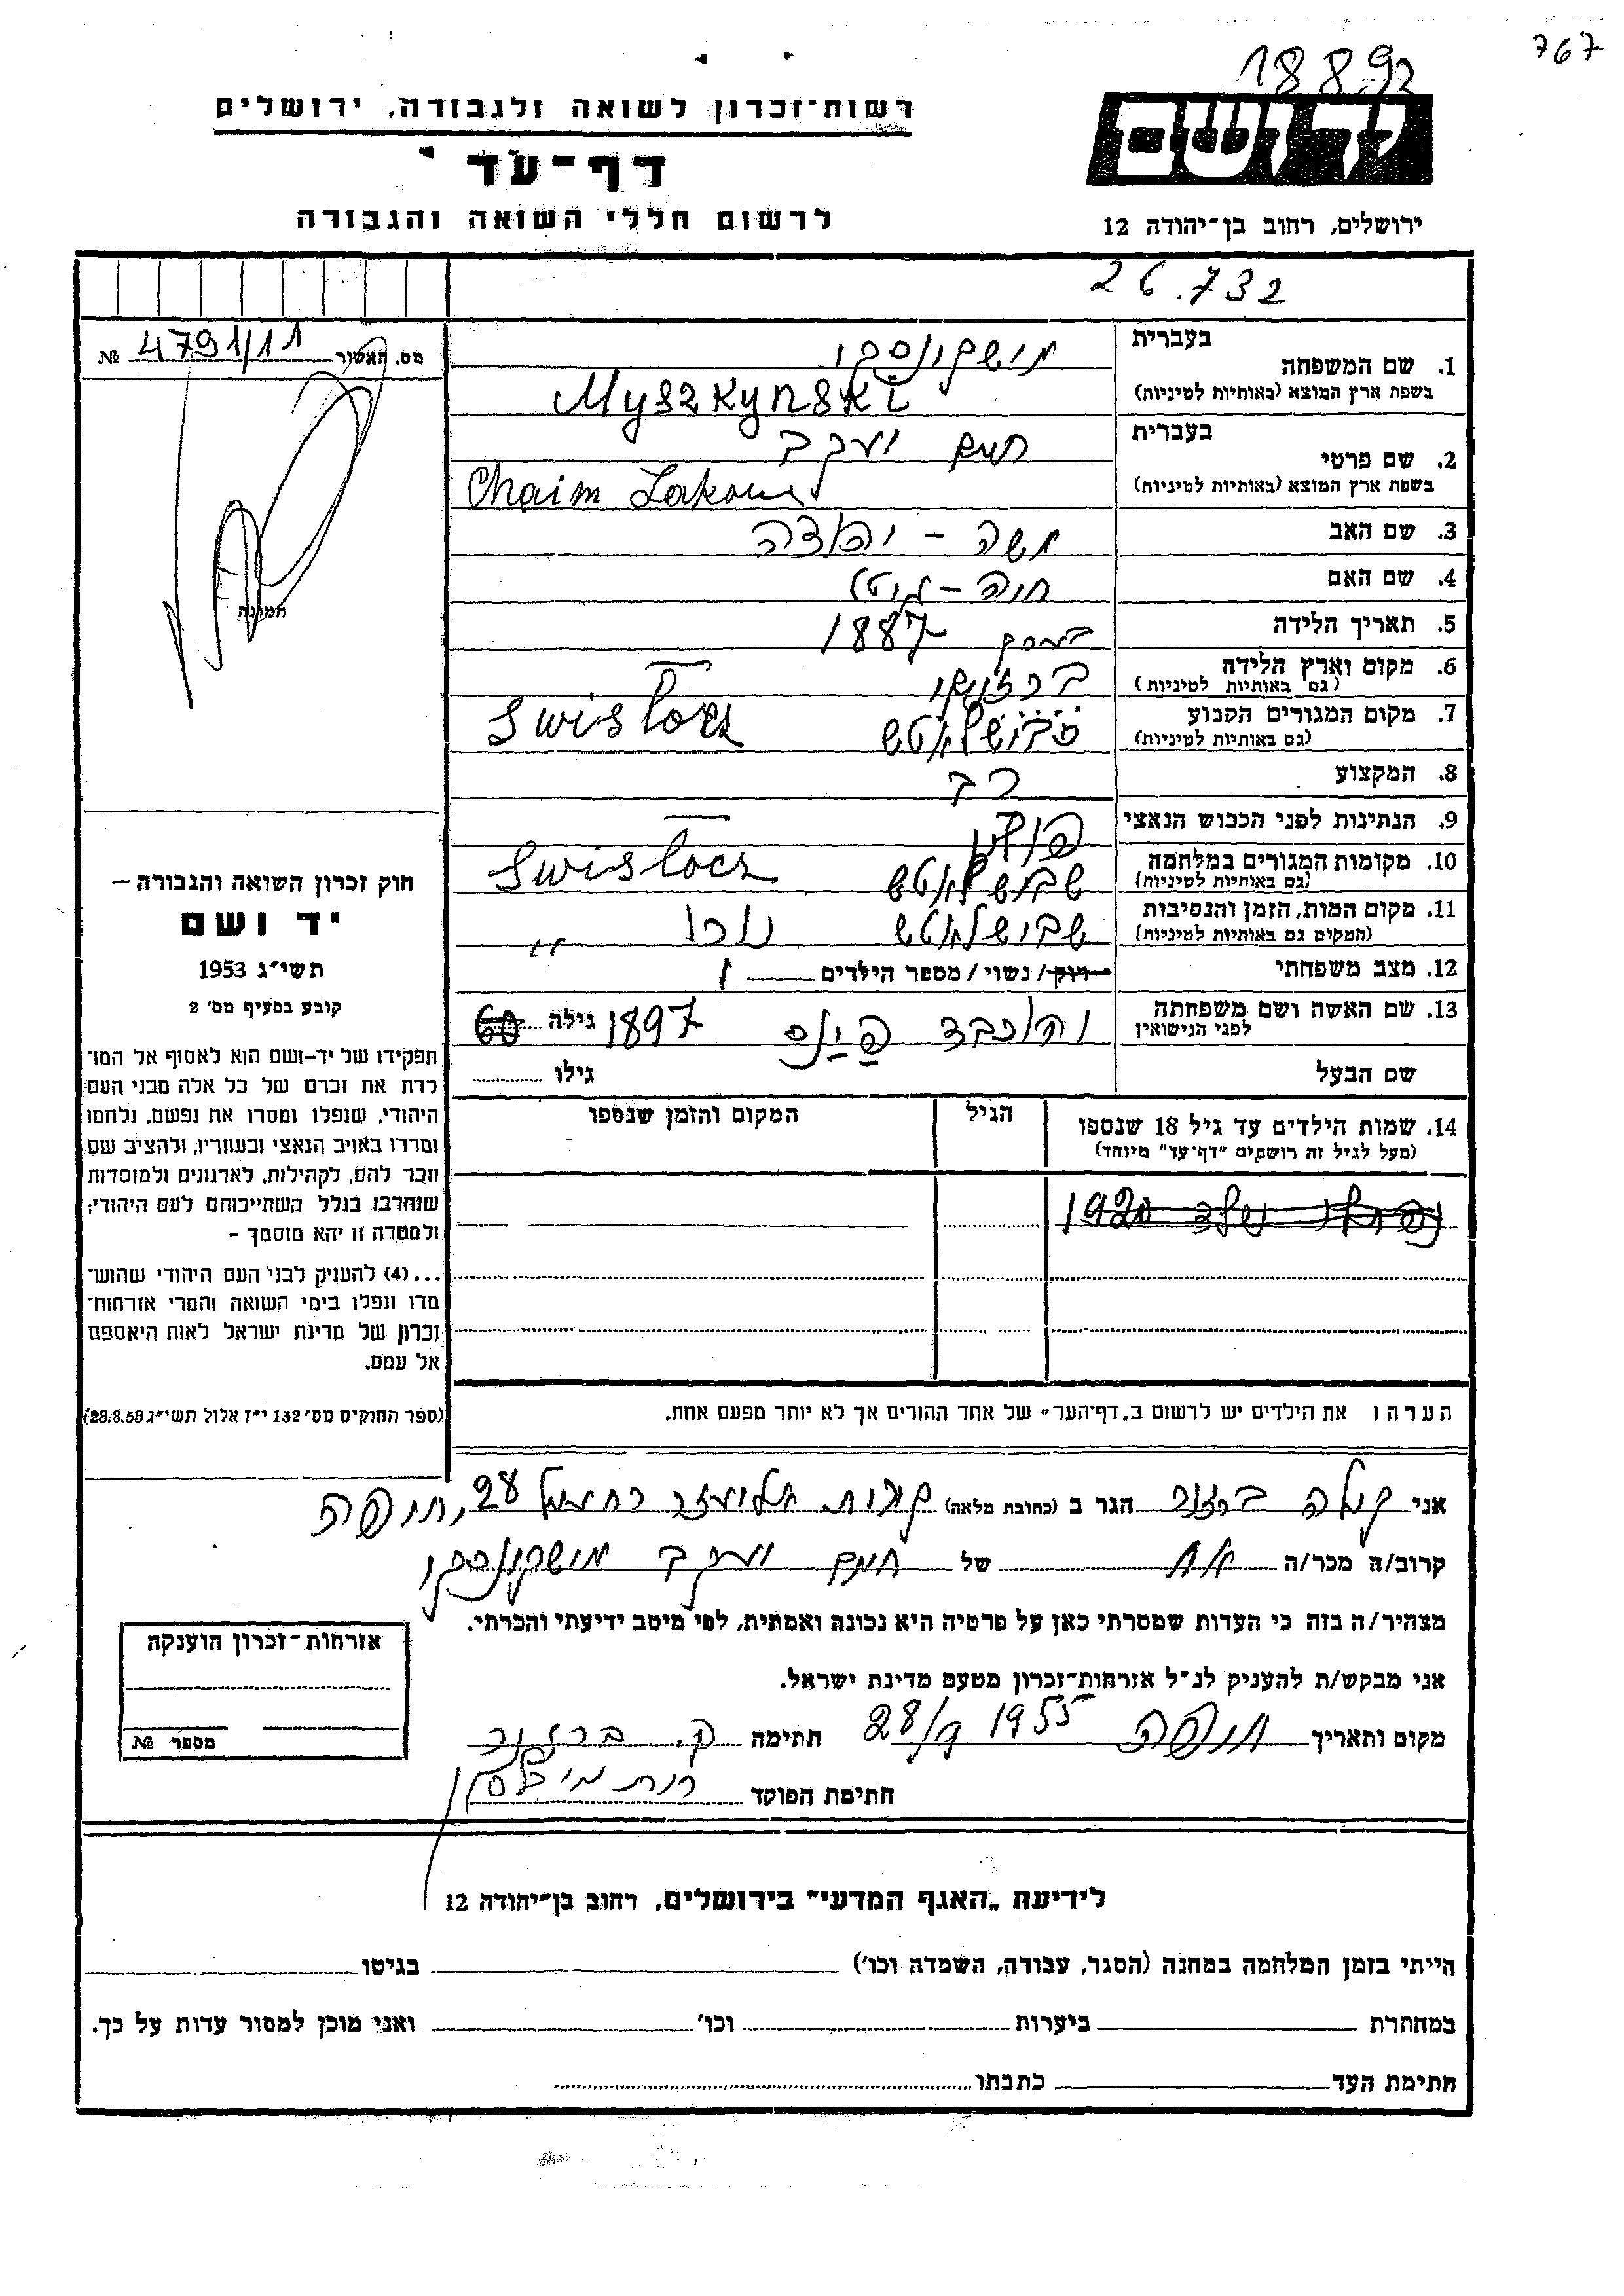 767
18 8 92
יד ושם
ירושלים, רחוב בן־יהודה 12
רשות־זכרון לשואה ולגבורה, ירושלים
דף־עד
לרשום חללי השואה והגבורה
26.732
מס. האשור 4791/11 №
תמונה
1. שם המשפחה
בעברית מושקינסקי
בשפת ארץ המוצא (באותיות לטיניות) Myszkynski
2. שם פרטי
בעברית חיים יעקב
בשפת ארץ המוצא (באותיות לטיניות) Chaim
3. שם האב משה - יהודה
4. שם האם חיה -
5. תאריך הלידה 1887
6. מקום וארץ הלידה
(גם באותיות לטיניות)
7. מקום המגורים הקבוע Swisłocz
(גם באותיות לטיניות)
8. המקצוע רב
9. הנתינות לפני הכבוש הנאצי
10. מקומות המגורים במלחמה Swisłocz
(גם באותיות לטיניות)
11. מקום המות, הזמן והנסיבות
(המקום גם באותיות לטיניות)
12. מצב משפחתי רוק / נשוי / מספר הילדים 1
13. שם האשה ושם משפחתה יוכבד פינס 1897 גילה 60
לפני הנישואין
שם הבעל גילו
14. שמות הילדים עד גיל 18 שנספו הגיל המקום והזמן שנספו
(מעל לגיל זה רושמים "דף־עד" מיוחד)
1920
הערה: את הילדים יש לרשום ב„דף־העד" של אחד ההורים אך לא יותר מפעם אחת.
חוק זכרון השואה והגבורה –
יד ושם
תשי״ג 1953
קובע בסעיף מס׳ 2
תפקידו של יד-ושם הוא לאסוף אל המו־
לדת את זכרם של כל אלה מבני העם
היהודי, שנפלו ומסרו את נפשם, נלחמו
ומרדו באויב הנאצי ובעוזריו, ולהציב שם
וזכר להם, לקהילות, לארגונים ולמוסדות
שנחרבו בגלל השתייכותם לעם היהודי;
ולמטרה זו יהא מוסמך –
...(4) להעניק לבני העם היהודי שהוש־
מדו ונפלו בימי השואה והמרי אזרחות־
זכרון של מדינת ישראל לאות היאספם
אל עמם.
(ספר החוקים מס׳ 132 י״ז אלול תשי״ג 28.8.53)
אני הגר ב (כתובת מלאה) קרית אליעזר 28, חיפה
קרוב/ה מכר/ה אח של חיים יעקב מושקינסקי
מצהיר/ה בזה כי העדות שמסרתי כאן על פרטיה היא נכונה ואמתית, לפי מיטב ידיעתי והכרתי.
אני מבקש/ת להעניק לנ״ל אזרחות־זכרון מטעם מדינת ישראל.
מקום ותאריך חיפה 28/9 1955 חתימה
חתימת הפוקד
אזרחות־זכרון הוענקה
מספר №
לידיעת „האגף המדעי" בירושלים, רחוב בן־יהודה 12
הייתי בזמן המלחמה במחנה (הסגר, עבודה, השמדה וכו׳) בגיטו
במחתרת ביערות וכו׳ ואני מוכן למסור עדות על כך.
חתימת העד כתבתו